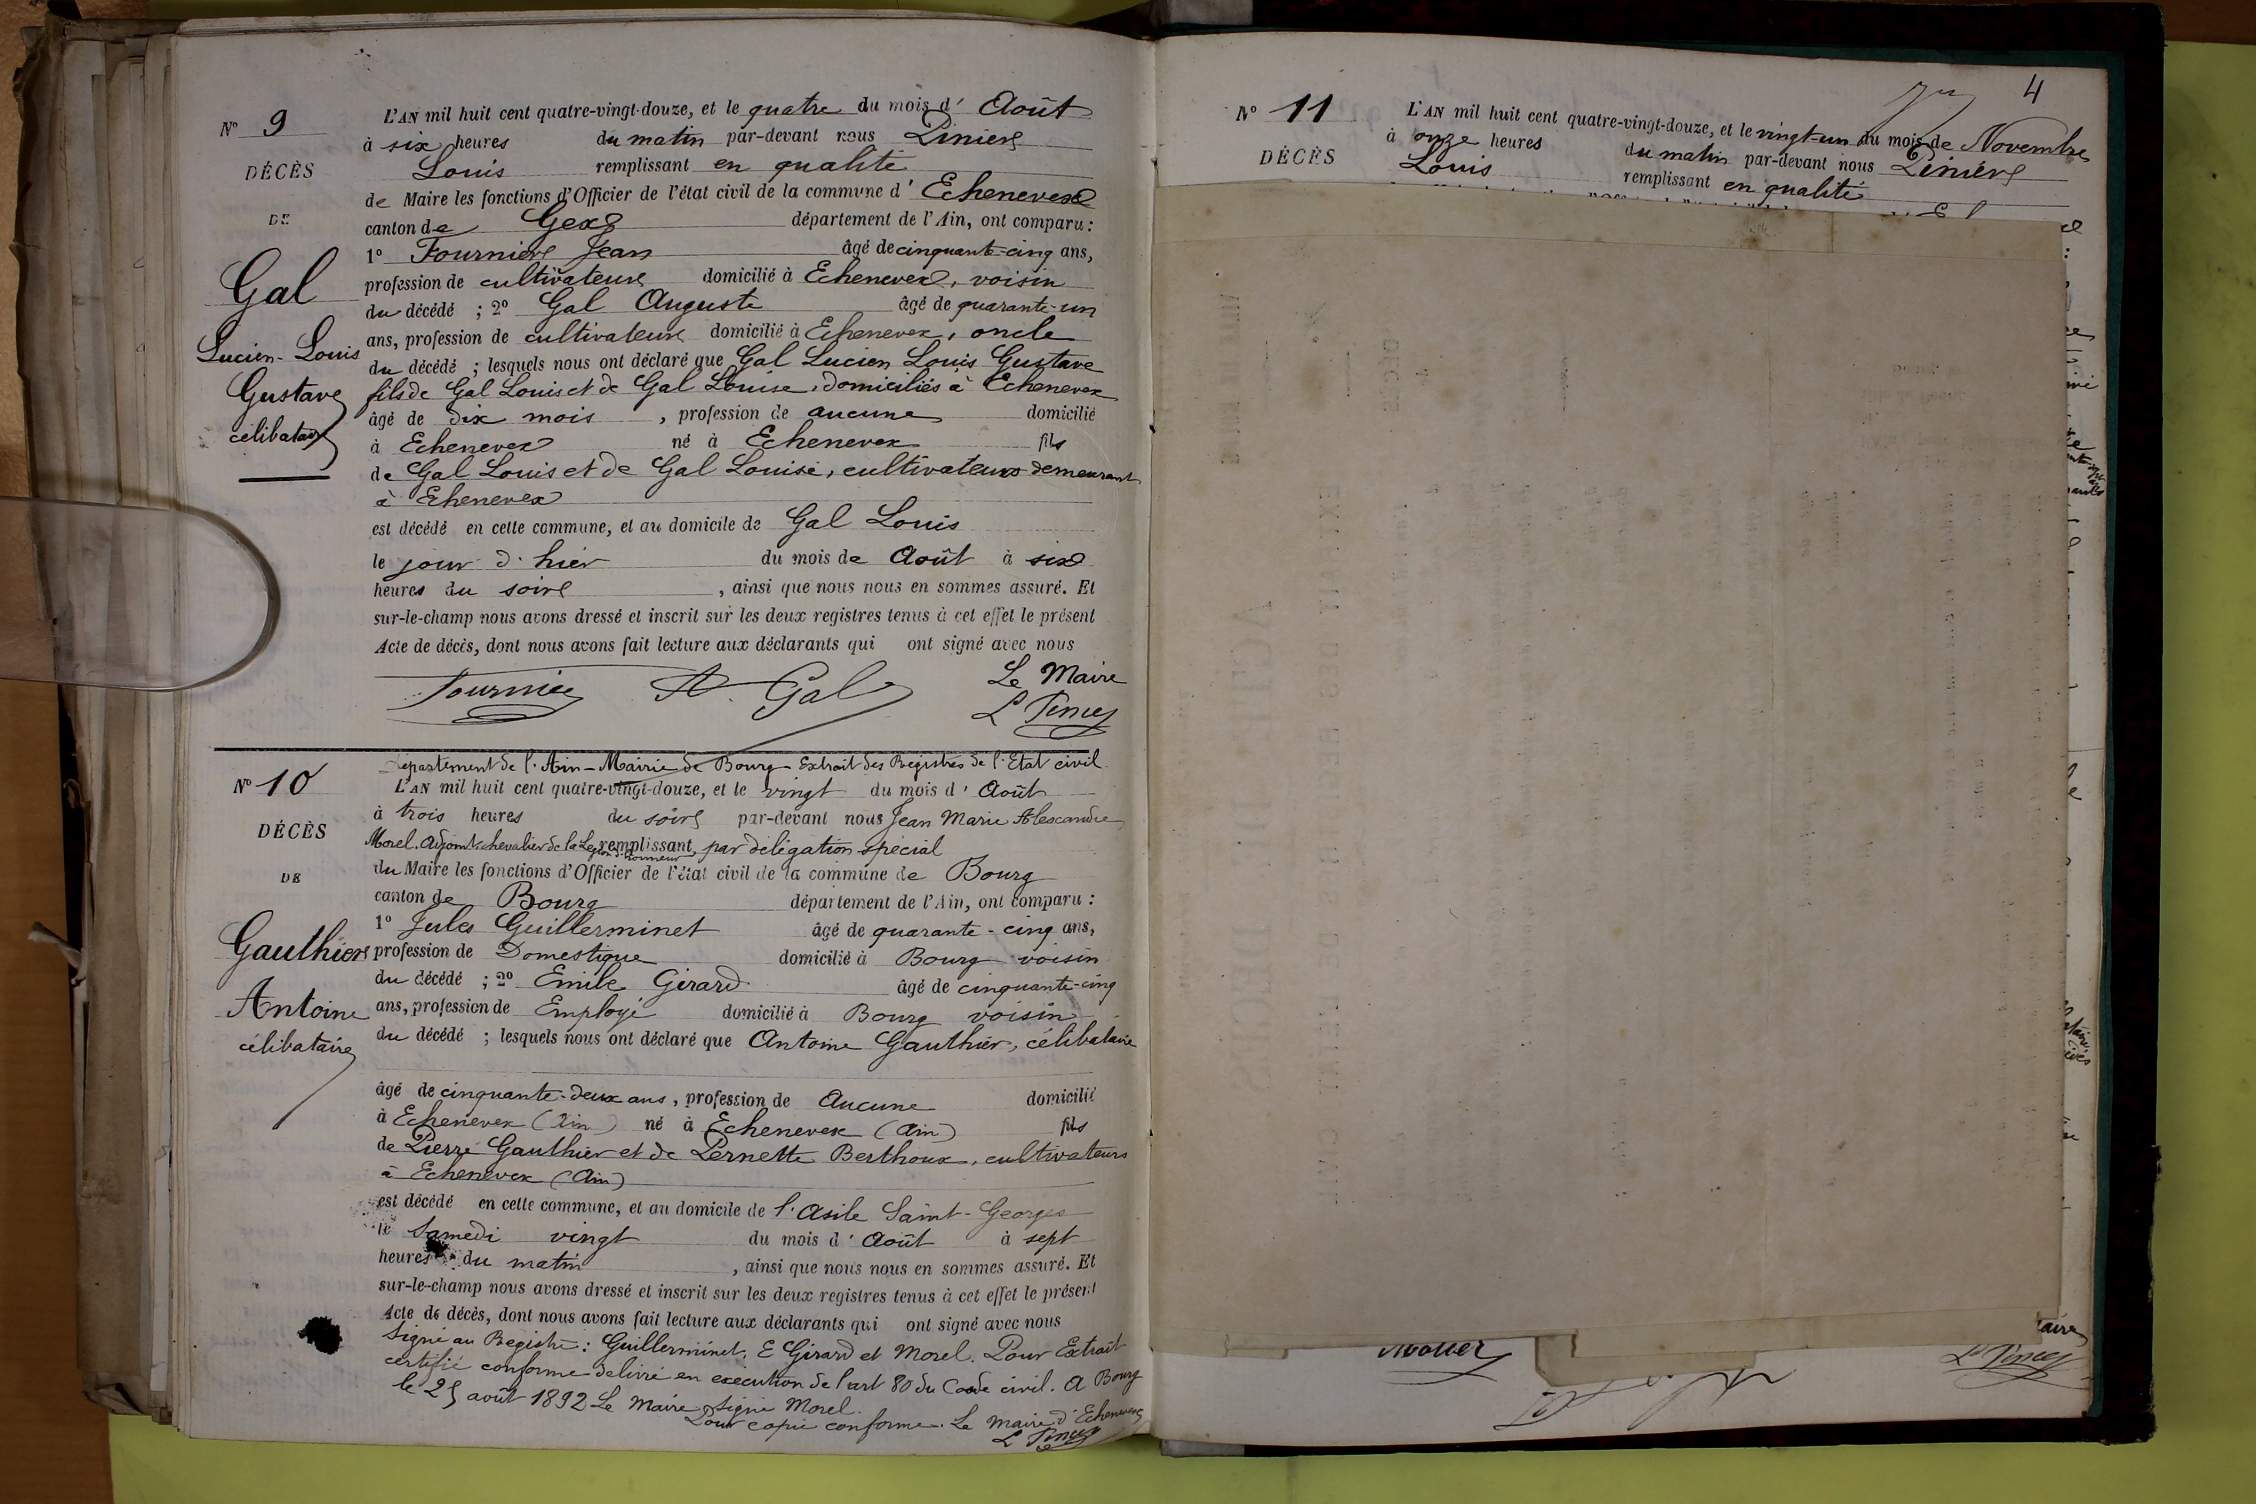 N° 9
DÉCÈS
DE
Gal
Lucien-Louis
Gustave
célibataire
L'AN mil huit cent quatre-vingt-douze, et le quatre du mois d' Août
à six heures du matin par-devant nous Pinier
Louis remplissant en qualité
de Maire les fonctions d'Officier de l'état civil de la commune d' Echenevex
canton de Gex département de l'Ain, ont comparu :
1° Fournier Jean âgé de cinquante-cinq ans,
profession de cultivateur domicilié à Echenevex, voisin
du décédé ; 2° Gal Auguste âgé de quarante-un
ans, profession de cultivateur domicilié à Echenevex, oncle
du décédé ; lesquels nous ont déclaré que Gal Lucien Louis Gustave
fils de Gal Louis et de Gal Louise, domiciliés à Echenevex
âgé de dix mois , profession de aucune domicilié
à Echenevex né à Echenevex fils
de Gal Louis et de Gal Louise, cultivateurs demeurant
à Echenevex
est décédé en cette commune, et au domicile de Gal Louis
le jour d'hier du mois de Août à six
heures du soir , ainsi que nous nous en sommes assuré. Et
sur-le-champ nous avons dressé et inscrit sur les deux registres tenus à cet effet le présent
Acte de décès, dont nous avons fait lecture aux déclarants qui ont signé avec nous
Fournier A. Gal Le Maire
L Pinier
N° 10
DÉCÈS
DE
Gauthier
Antoine
célibataire
Département de l'Ain - Mairie de Bourg - Extrait des Registres de l'Etat civil
L'AN mil huit cent quatre-vingt-douze, et le vingt du mois d' Août
à trois heures du soir par-devant nous Jean Marie Alexandre
Morel, Adjoint, chevalier de la Légion d'honneur remplissant par délégation spécial
du Maire les fonctions d'Officier de l'état civil de la commune de Bourg
canton de Bourg département de l'Ain, ont comparu :
1° Jules Guillerminet âgé de quarante-cinq ans,
profession de Domestique domicilié à Bourg voisin
du décédé ; 2° Emile Girard âgé de cinquante-cinq
ans, profession de Employé domicilié à Bourg voisin
du décédé ; lesquels nous ont déclaré que Antoine Gauthier, célibataire
âgé de cinquante-deux ans, profession de Aucune domicilié
à Echenevex (Ain) né à Echenevex (Ain) fils
de Pierre Gauthier et de Pernette Berthoux, cultivateurs
à Echenevex (Ain)
est décédé en cette commune, et au domicile de l'Asile Saint-Georges
le Samedi vingt du mois d' Août à sept
heures du matin , ainsi que nous nous en sommes assuré. Et
sur-le-champ nous avons dressé et inscrit sur les deux registres tenus à cet effet le présent
Acte de décès, dont nous avons fait lecture aux déclarants qui ont signé avec nous
Signé au Registre : Guillerminet, E Girard et Morel. Pour Extrait
certifié conforme délivré en exécution de l'art 80 du Code civil. A Bourg
le 25 août 1892 Le Maire Signé Morel.
Pour copie conforme. Le Maire d'Echenevex
L Pinier
4
N° 11
DÉCÈS
L'AN mil huit cent quatre-vingt-douze, et le vingt-un du mois de Novembre
à onze heures du matin par-devant nous Pinier
Louis remplissant en qualité
L Pinier